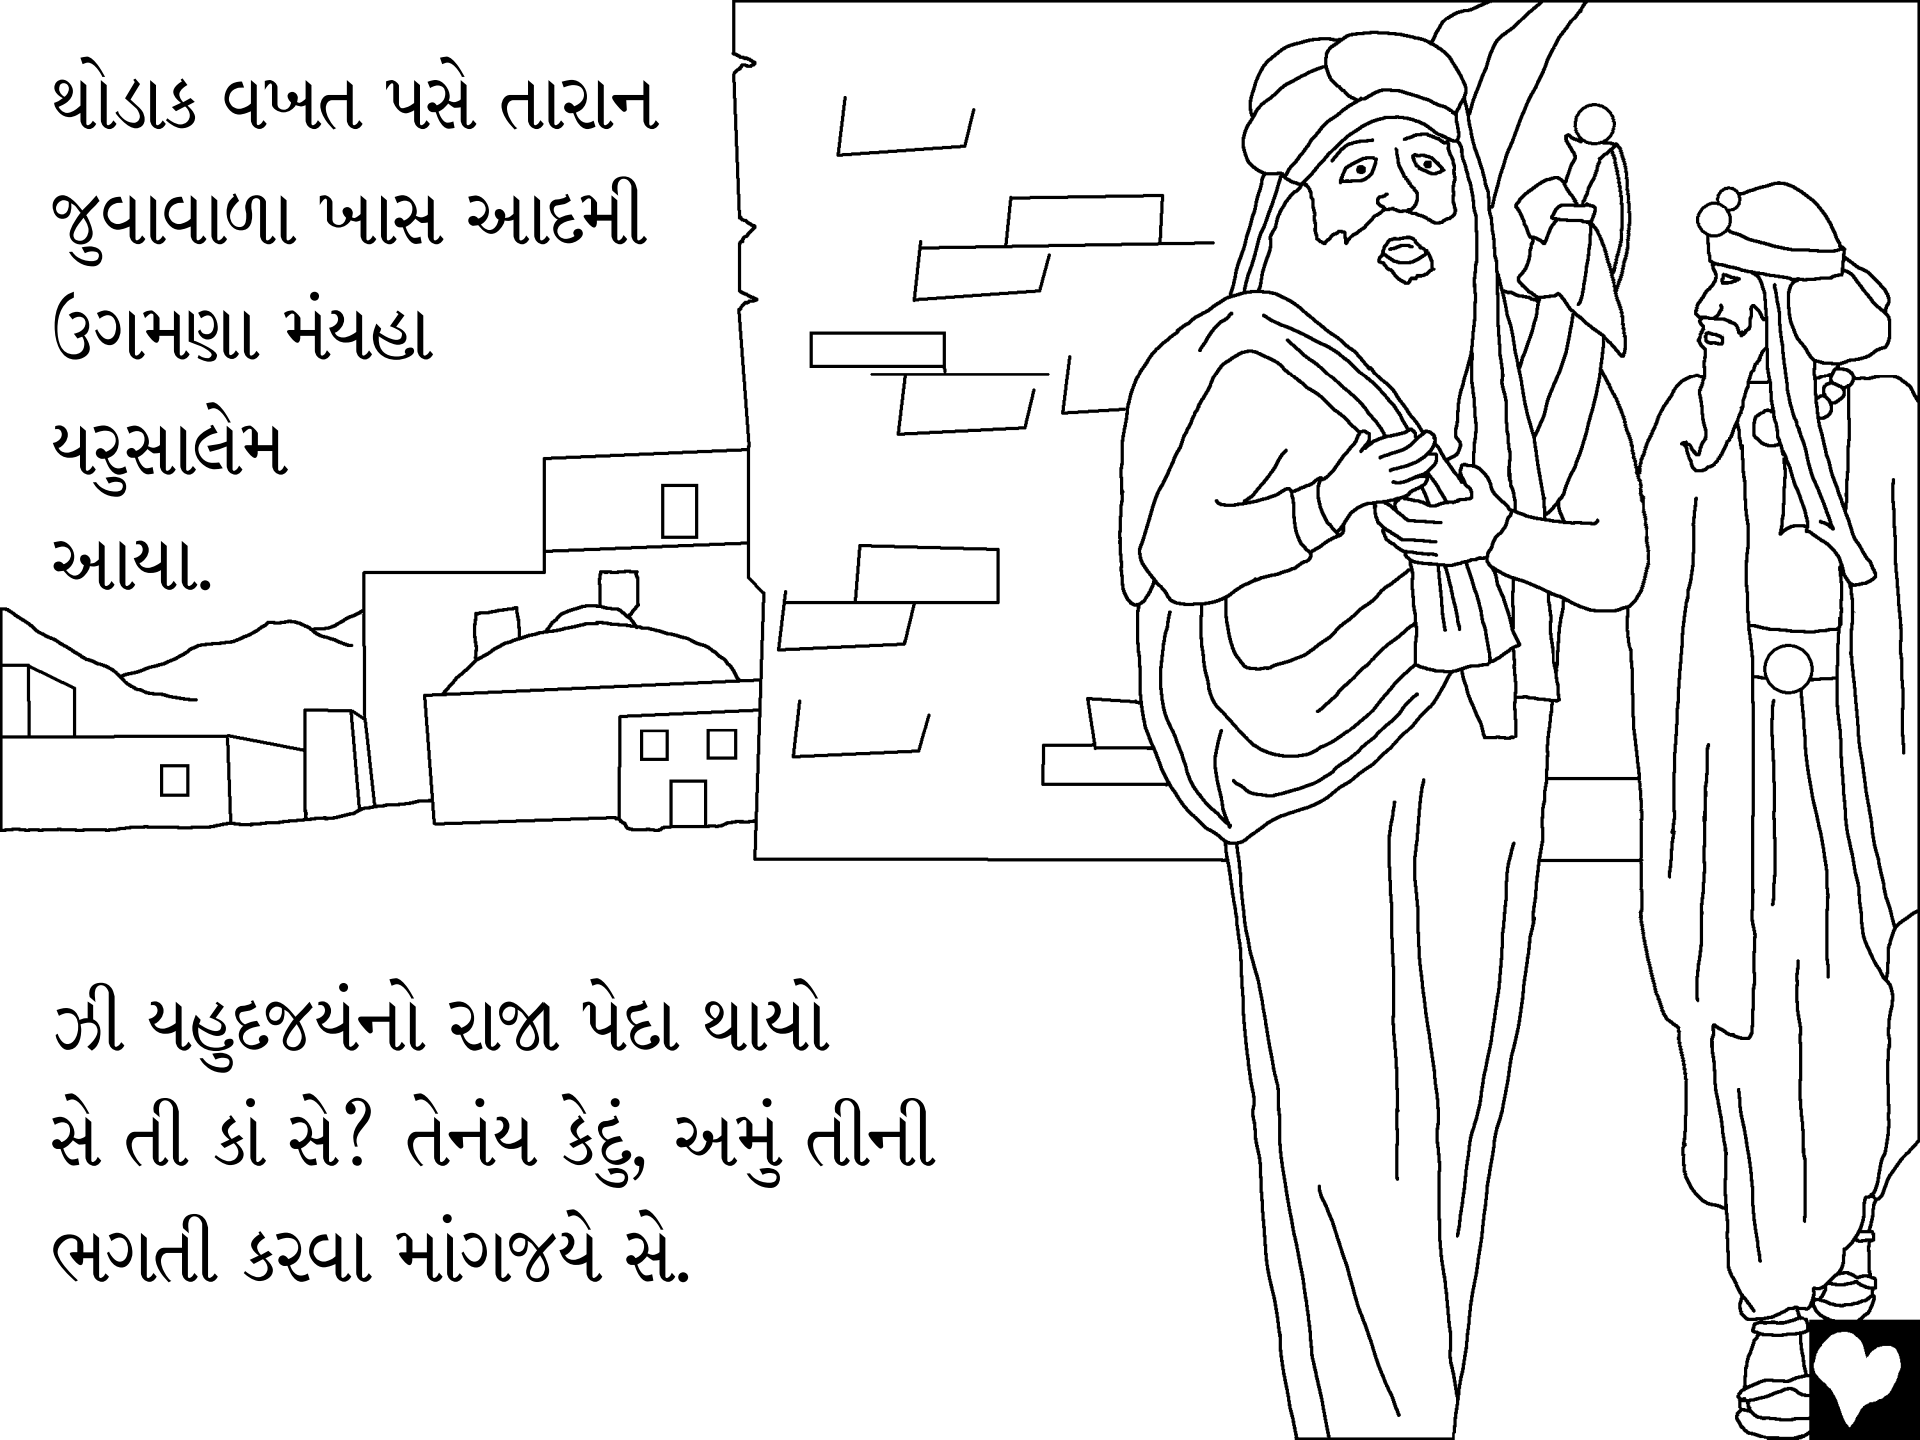 થોડાક વખત પસે તારાન
જુવાવાળા ખાસ આદમી
ઉગમણા મંયહા
યરુસાલેમ
આયા.
ઝી યહુદજયંનો રાજા પેદા થાયો
સે તી કાં સે? તેનંય કેદું, અમું તીની
ભગતી કરવા માંગજયે સે.